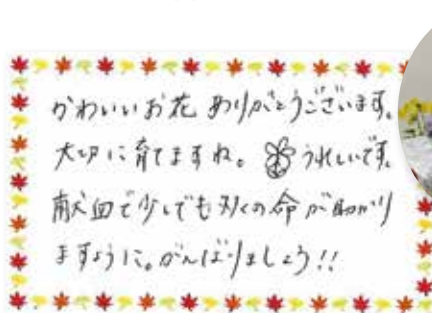 かわいいお花 ありがとうございます。
大切に育てますね。うれしいです。
献血で少しでも多くの命が助かり
ますように。がんばりましょう!!